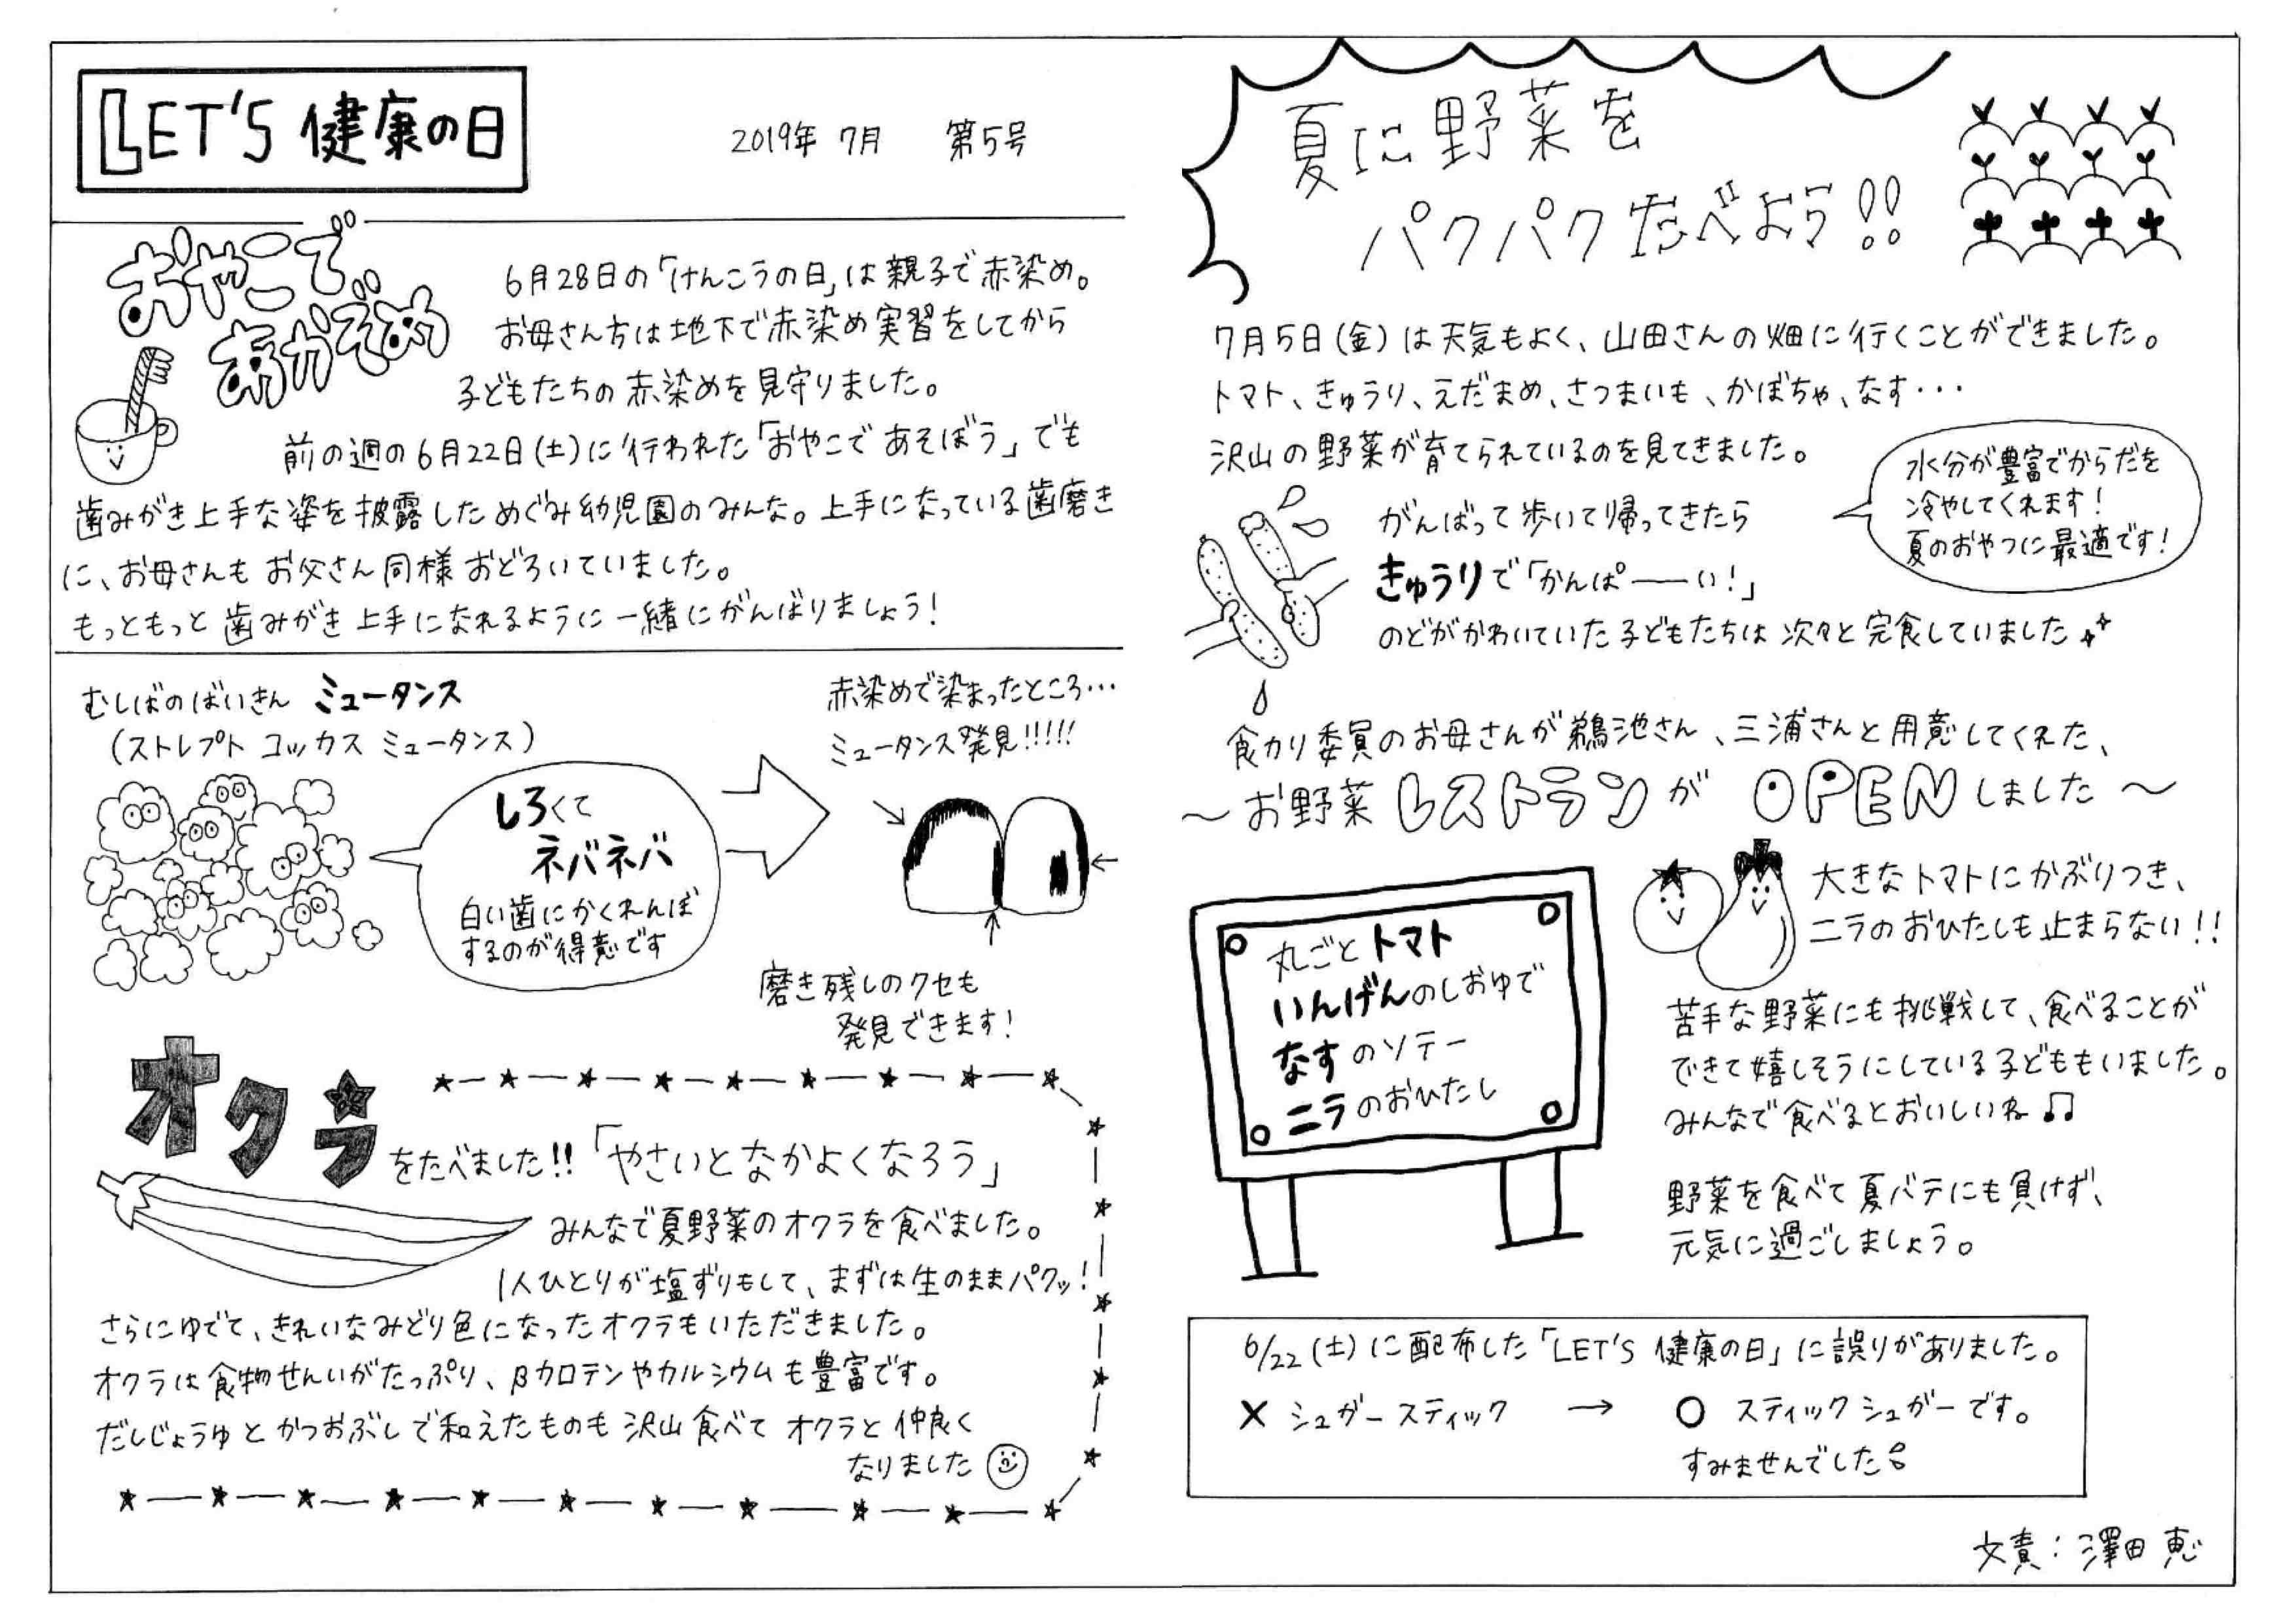 LET'S 健康の日
2019年 7月 第5号
おやこで
あかぞめ
6月28日の「けんこうの日」は親子で赤染め。
お母さん方は地下で赤染め実習をしてから
子どもたちの赤染めを見守りました。
前の週の6月22日(土)に行われた「おやこであそぼう」でも
歯みがき上手な姿を披露しためぐみ幼児園のみんな。上手になっている歯磨き
に、お母さんもお父さん同様おどろいていました。
もっともっと歯みがき上手になれるように一緒にがんばりましょう!
むしばのばいきん ミュータンス
(ストレプトコッカスミュータンス)
しろくて
ネバネバ
白い歯にかくれんぼ
するのが得意です
赤染めで染まったところ・・・
ミュータンス発見!!!!!
磨き残しのクセも
発見できます!
オクラをたべました!!「やさいとなかよくなろう」
みんなで夏野菜のオクラを食べました。
1人ひとりが塩ずりもして、まずは生のままパクッ!
さらにゆでて、きれいなみどり色になったオクラもいただきました。
オクラは食物せんいがたっぷり、βカロテンやカルシウムも豊富です。
だしじょうゆとかつおぶしで和えたものも沢山食べてオクラと仲良く
なりました
夏に野菜を
パクパクたべよう!!
7月5日(金)は天気もよく、山田さんの畑に行くことができました。
トマト、きゅうり、えだまめ、さつまいも、かぼちゃ、なす・・・
沢山の野菜が育てられているのを見てきました。
水分が豊富でからだを
冷やしてくれます!
夏のおやつに最適です!
がんばって歩いて帰ってきたら
きゅうりで「かんぱーい!」
のどがかわいていた子どもたちは次々と完食していました
食カリ委員のお母さんが鵜池さん、三浦さんと用意してくれた、
〜お野菜レストランがOPENしました〜
丸ごとトマト
いんげんのしおゆで
なすのソテー
ニラのおひたし
大きなトマトにかぶりつき、
ニラのおひたしも止まらない!!
苦手な野菜にも挑戦して、食べることが
できて嬉しそうにしている子どももいました。
みんなで食べるとおいしいね♫
野菜を食べて夏バテにも負けず、
元気に過ごしましょう。
6/22(土)に配布した「LET'S 健康の日」に誤りがありました。
× シュガースティック → ○ スティックシュガーです。
すみませんでした
文責:澤田 恵